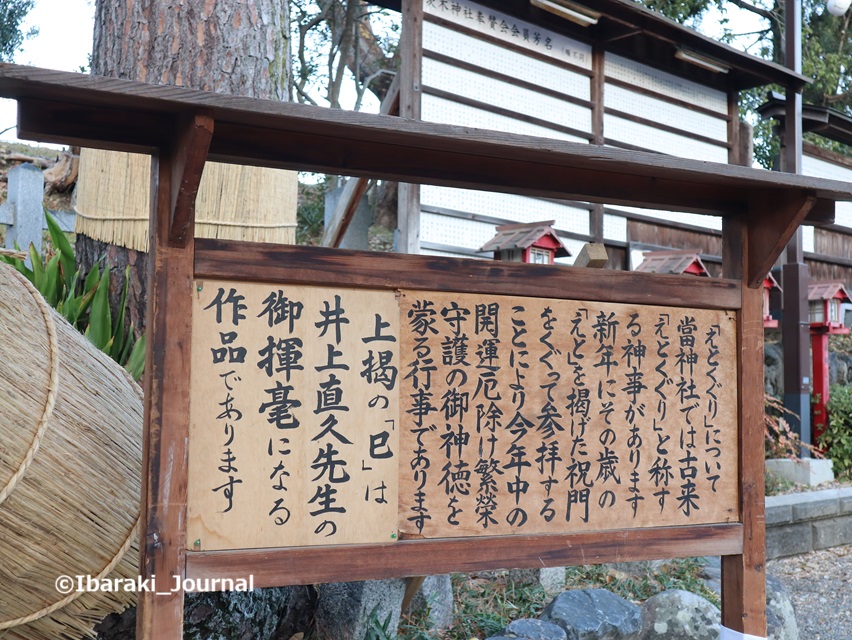 茨木神社奉賛会会員芳名
「えとくぐり」について
當神社では古来
「えとくぐり」と称す
る神事があります
新年にその歳の
「えと」を掲げた祝門
をくぐって参拝する
ことにより今年中の
開運厄除け繁榮
守護の御神徳を
蒙る行事であります
上掲の「巳」は
井上直久先生の
御揮毫になる
作品であります
©Ibaraki_Journal